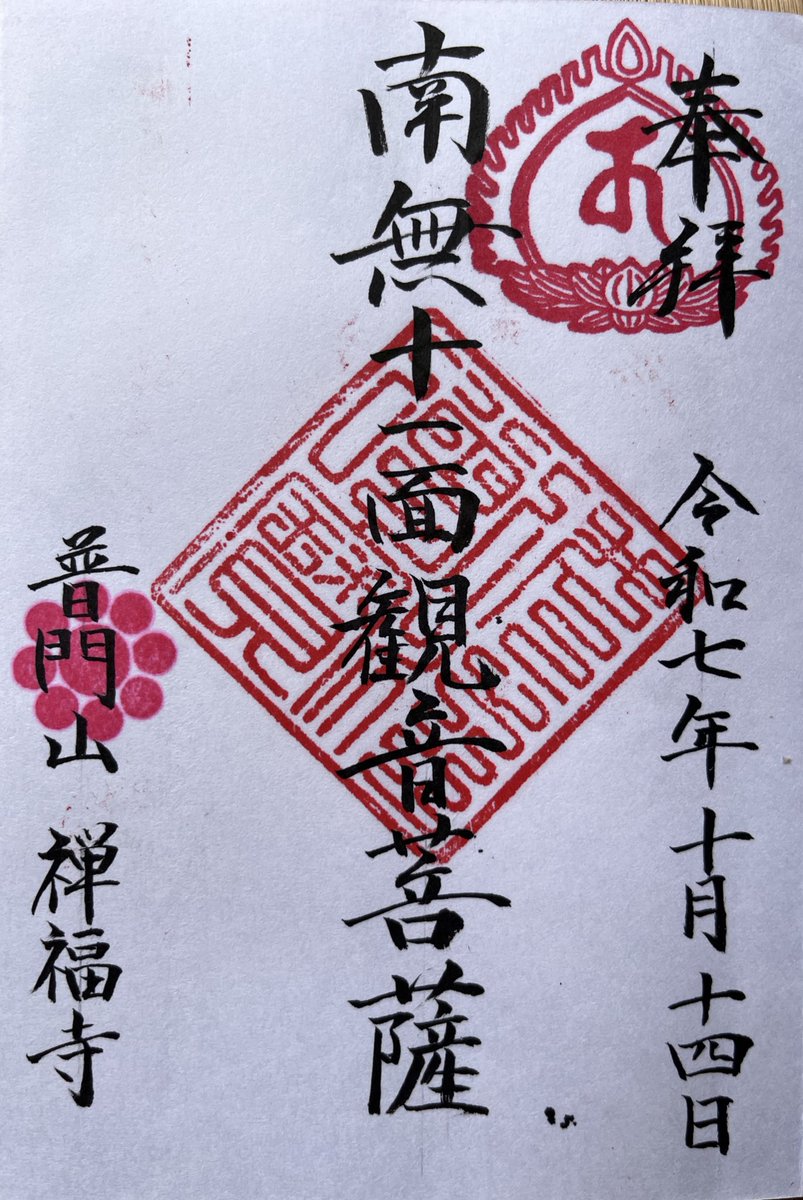 奉拝
令和七年十月十四日
南無十一面観音菩薩
普門山 禅福寺